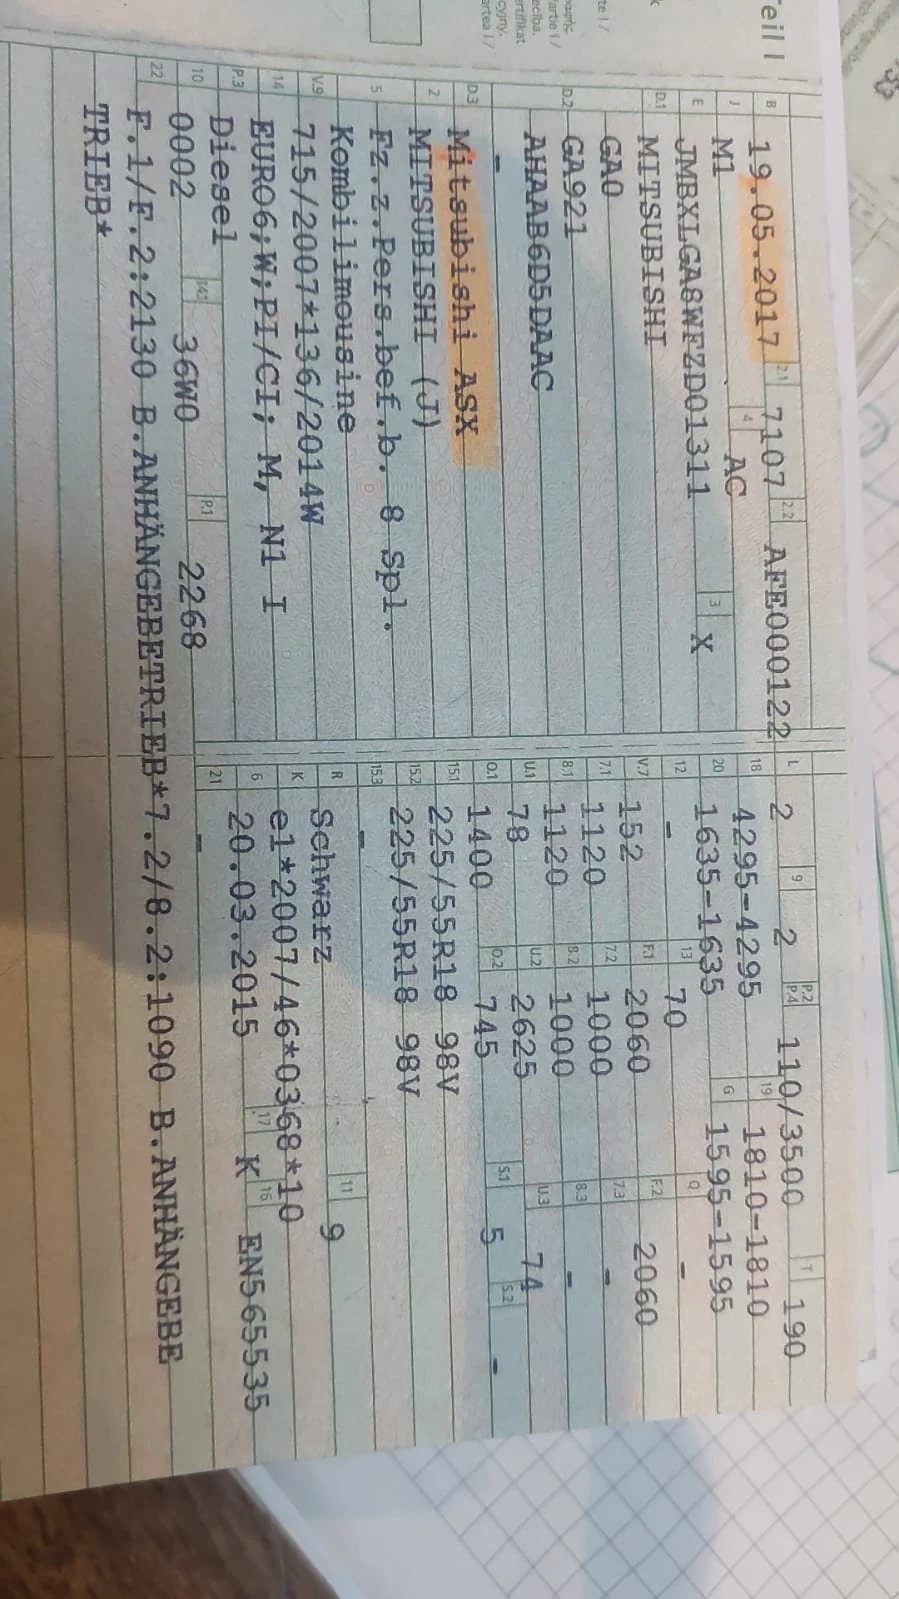 eil I
B 19.05.2017 2.1 7107 2.2 AFE000122
J M1 4 AC
E JMBXLGA8WFZD01311 3 X
D.1 MITSUBISHI
GA0
D.2 GA921
AHAAB6D5DAAC
-
D.3 Mitsubishi ASX
2 MITSUBISHI (J)
5 Fz.z.Pers.bef.b. 8 Spl.
Kombilimousine
V.9 715/2007*136/2014W
14 EURO6;W;PI/CI; M, N1 I
P.3 Diesel
10 0002 14.1 36W0 P.1 2268
22 F.1/F.2:2130 B.ANHÄNGEBETRIEB*7.2/8.2:1090 B.ANHÄNGEBE
TRIEB*
L 2 9 2 P.2 P.4 110/3500 T 190
18 4295-4295 19 1810-1810
20 1635-1635 G 1595-1595
12 - 13 70 Q -
V.7 152 F.1 2060 F.2 2060
7.1 1120 7.2 1000 7.3 -
8.1 1120 8.2 1000 8.3 -
U.1 78 U.2 2625 U.3 74
O.1 1400 O.2 745 S.1 5 S.2 -
15.1 225/55R18 98V
15.2 225/55R18 98V
15.3 -
R Schwarz 11 9
K e1*2007/46*0368*10
6 20.03.2015 17 K 16 EN565535
21 -